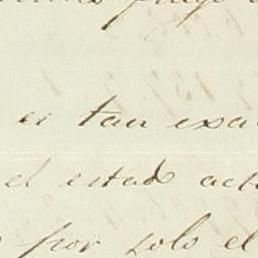 es tan exa
el estado act
por solo el